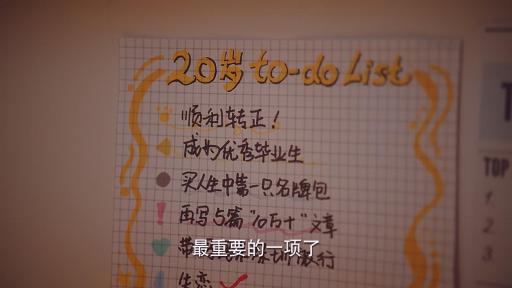 20岁 to-do List
顺利转正！
成为优秀毕业生
买人生中第一只名牌包
再写5篇“10万+”文章
最重要的一项了
TOP
1.
2.
3